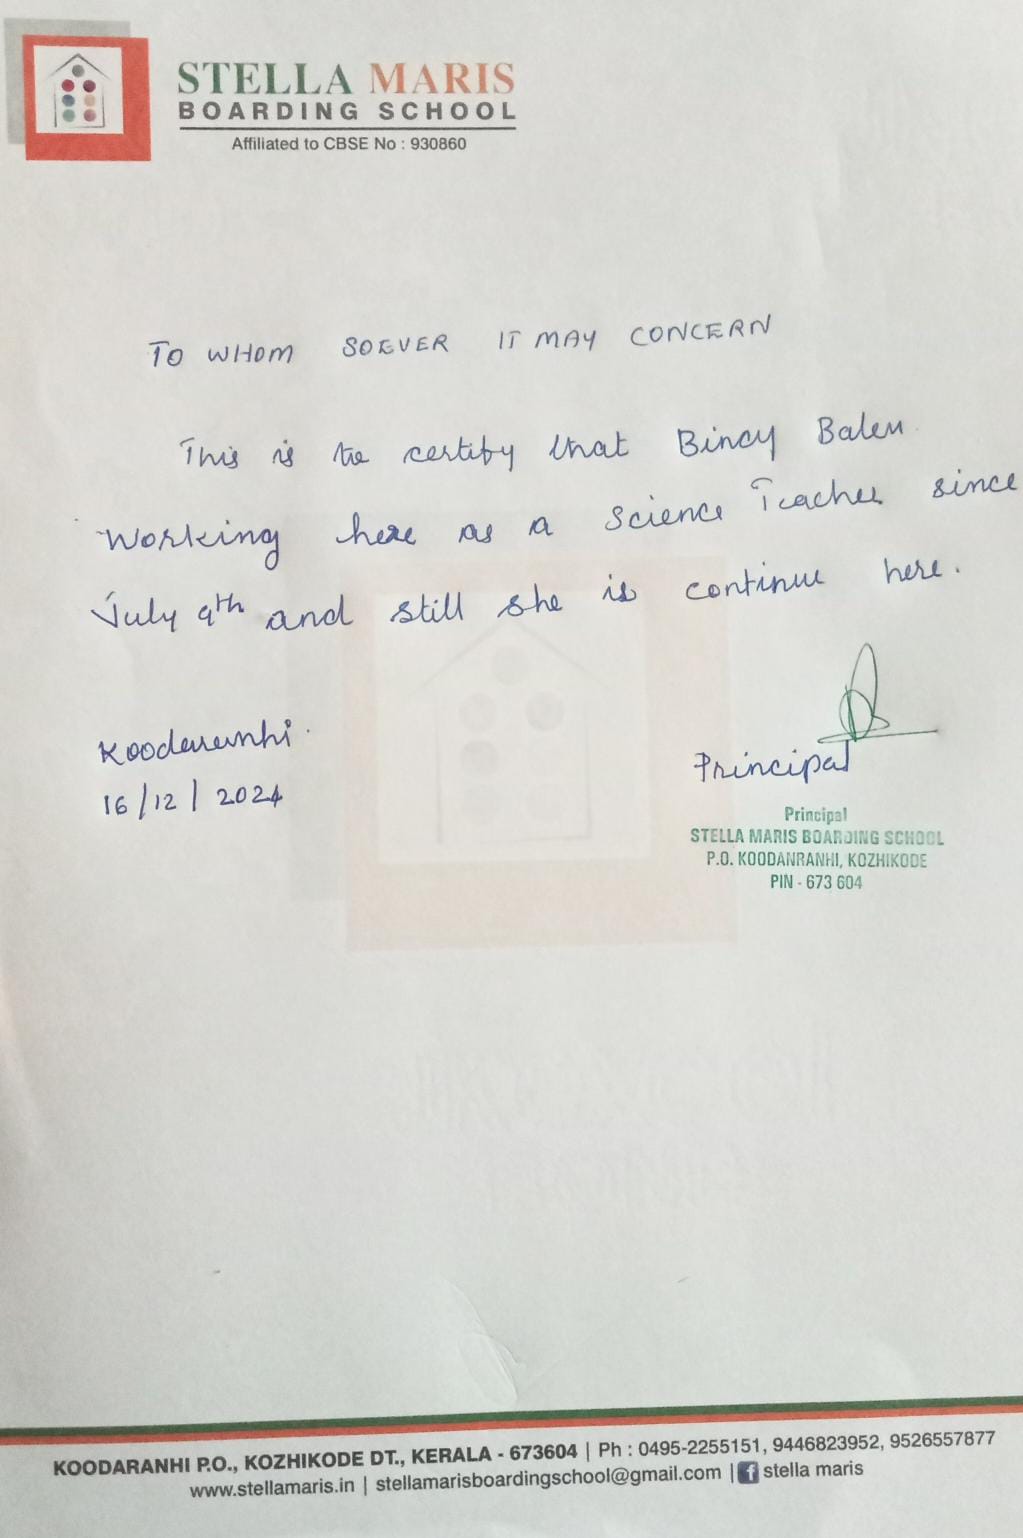 STELLA MARIS
BOARDING SCHOOL
Affiliated to CBSE No : 930860
TO WHOM SOEVER IT MAY CONCERN
This is the certify that Bincy Balen
working here as a Science Teacher since
July 9th and still she is continue here.
Koodaranhi.
16/12/2024
Principal
Principal
STELLA MARIS BOARDING SCHOOL
P.O. KOODANRANHI, KOZHIKODE
PIN - 673 604
KOODARANHI P.O., KOZHIKODE DT., KERALA - 673604 | Ph : 0495-2255151, 9446823952, 9526557877
www.stellamaris.in | stellamarisboardingschool@gmail.com | f stella maris